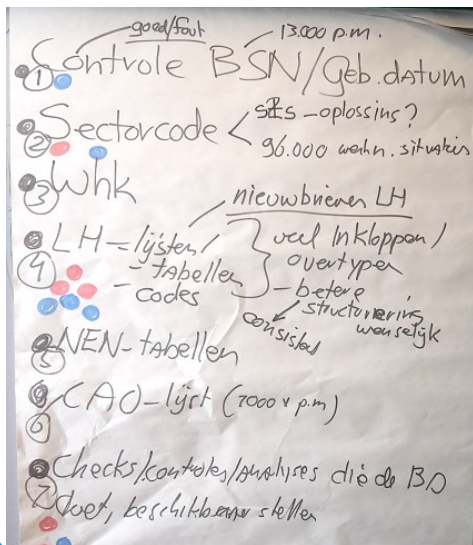 goed/fout
13.000 p.m.
① Controle BSN/geb.datum
② Sectorcode < SBS - oplossing?
96.000 werkn. situaties
③ Whk
nieuwbrieven LH
④ LH - lijsten/
- tabellen
- codes
veel inkloppen/
overtypen
- betere
structurering
wenselijk
consistent
⑤ NEN-tabellen
⑥ CAO-lijst (7000 x p.m)
⑦ Checks/controles/analyses die de BD
doet, beschikbaar stellen